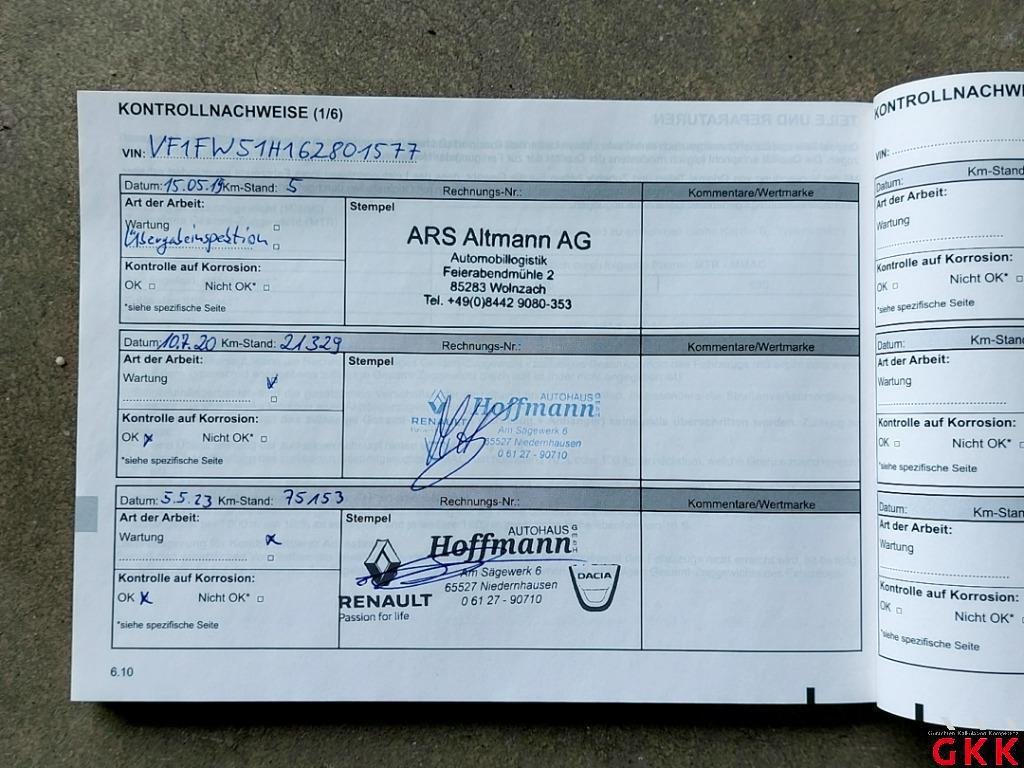 KONTROLLNACHWEISE (1/6)
VIN: VF1FW51H162801577
Datum: 15.05.19 Km-Stand: 5 Rechnungs-Nr.: Kommentare/Wertmarke
Art der Arbeit: Stempel
Wartung
Übergabeinspektion
Kontrolle auf Korrosion:
OK Nicht OK*
*siehe spezifische Seite
ARS Altmann AG
Automobillogistik
Feierabendmühle 2
85283 Wolnzach
Tel. +49(0)8442 9080-353
Datum: 10.7.20 Km-Stand: 21329 Rechnungs-Nr.: Kommentare/Wertmarke
Art der Arbeit: Stempel
Wartung
Kontrolle auf Korrosion:
OK x Nicht OK*
*siehe spezifische Seite
AUTOHAUS
Hoffmann GmbH
RENAULT
Am Sägewerk 6
65527 Niedernhausen
0 61 27 - 90710
Datum: 5.5.23 Km-Stand: 75153 Rechnungs-Nr.: Kommentare/Wertmarke
Art der Arbeit: Stempel
Wartung x
Kontrolle auf Korrosion:
OK x Nicht OK*
*siehe spezifische Seite
AUTOHAUS
Hoffmann GmbH
Am Sägewerk 6
65527 Niedernhausen
0 61 27 - 90710
RENAULT
Passion for life
DACIA
6.10
KONTROLLNACHWEI
VIN:
Datum: Km-Stand
Art der Arbeit:
Wartung
Kontrolle auf Korrosion:
OK Nicht OK*
*siehe spezifische Seite
Datum: Km-Stand
Art der Arbeit:
Wartung
Kontrolle auf Korrosion:
OK Nicht OK*
*siehe spezifische Seite
Datum: Km-Stan
Art der Arbeit:
Wartung
Kontrolle auf Korrosion:
OK Nicht OK*
*siehe spezifische Seite
Gutachten Kalkulation Kompetenz
GKK